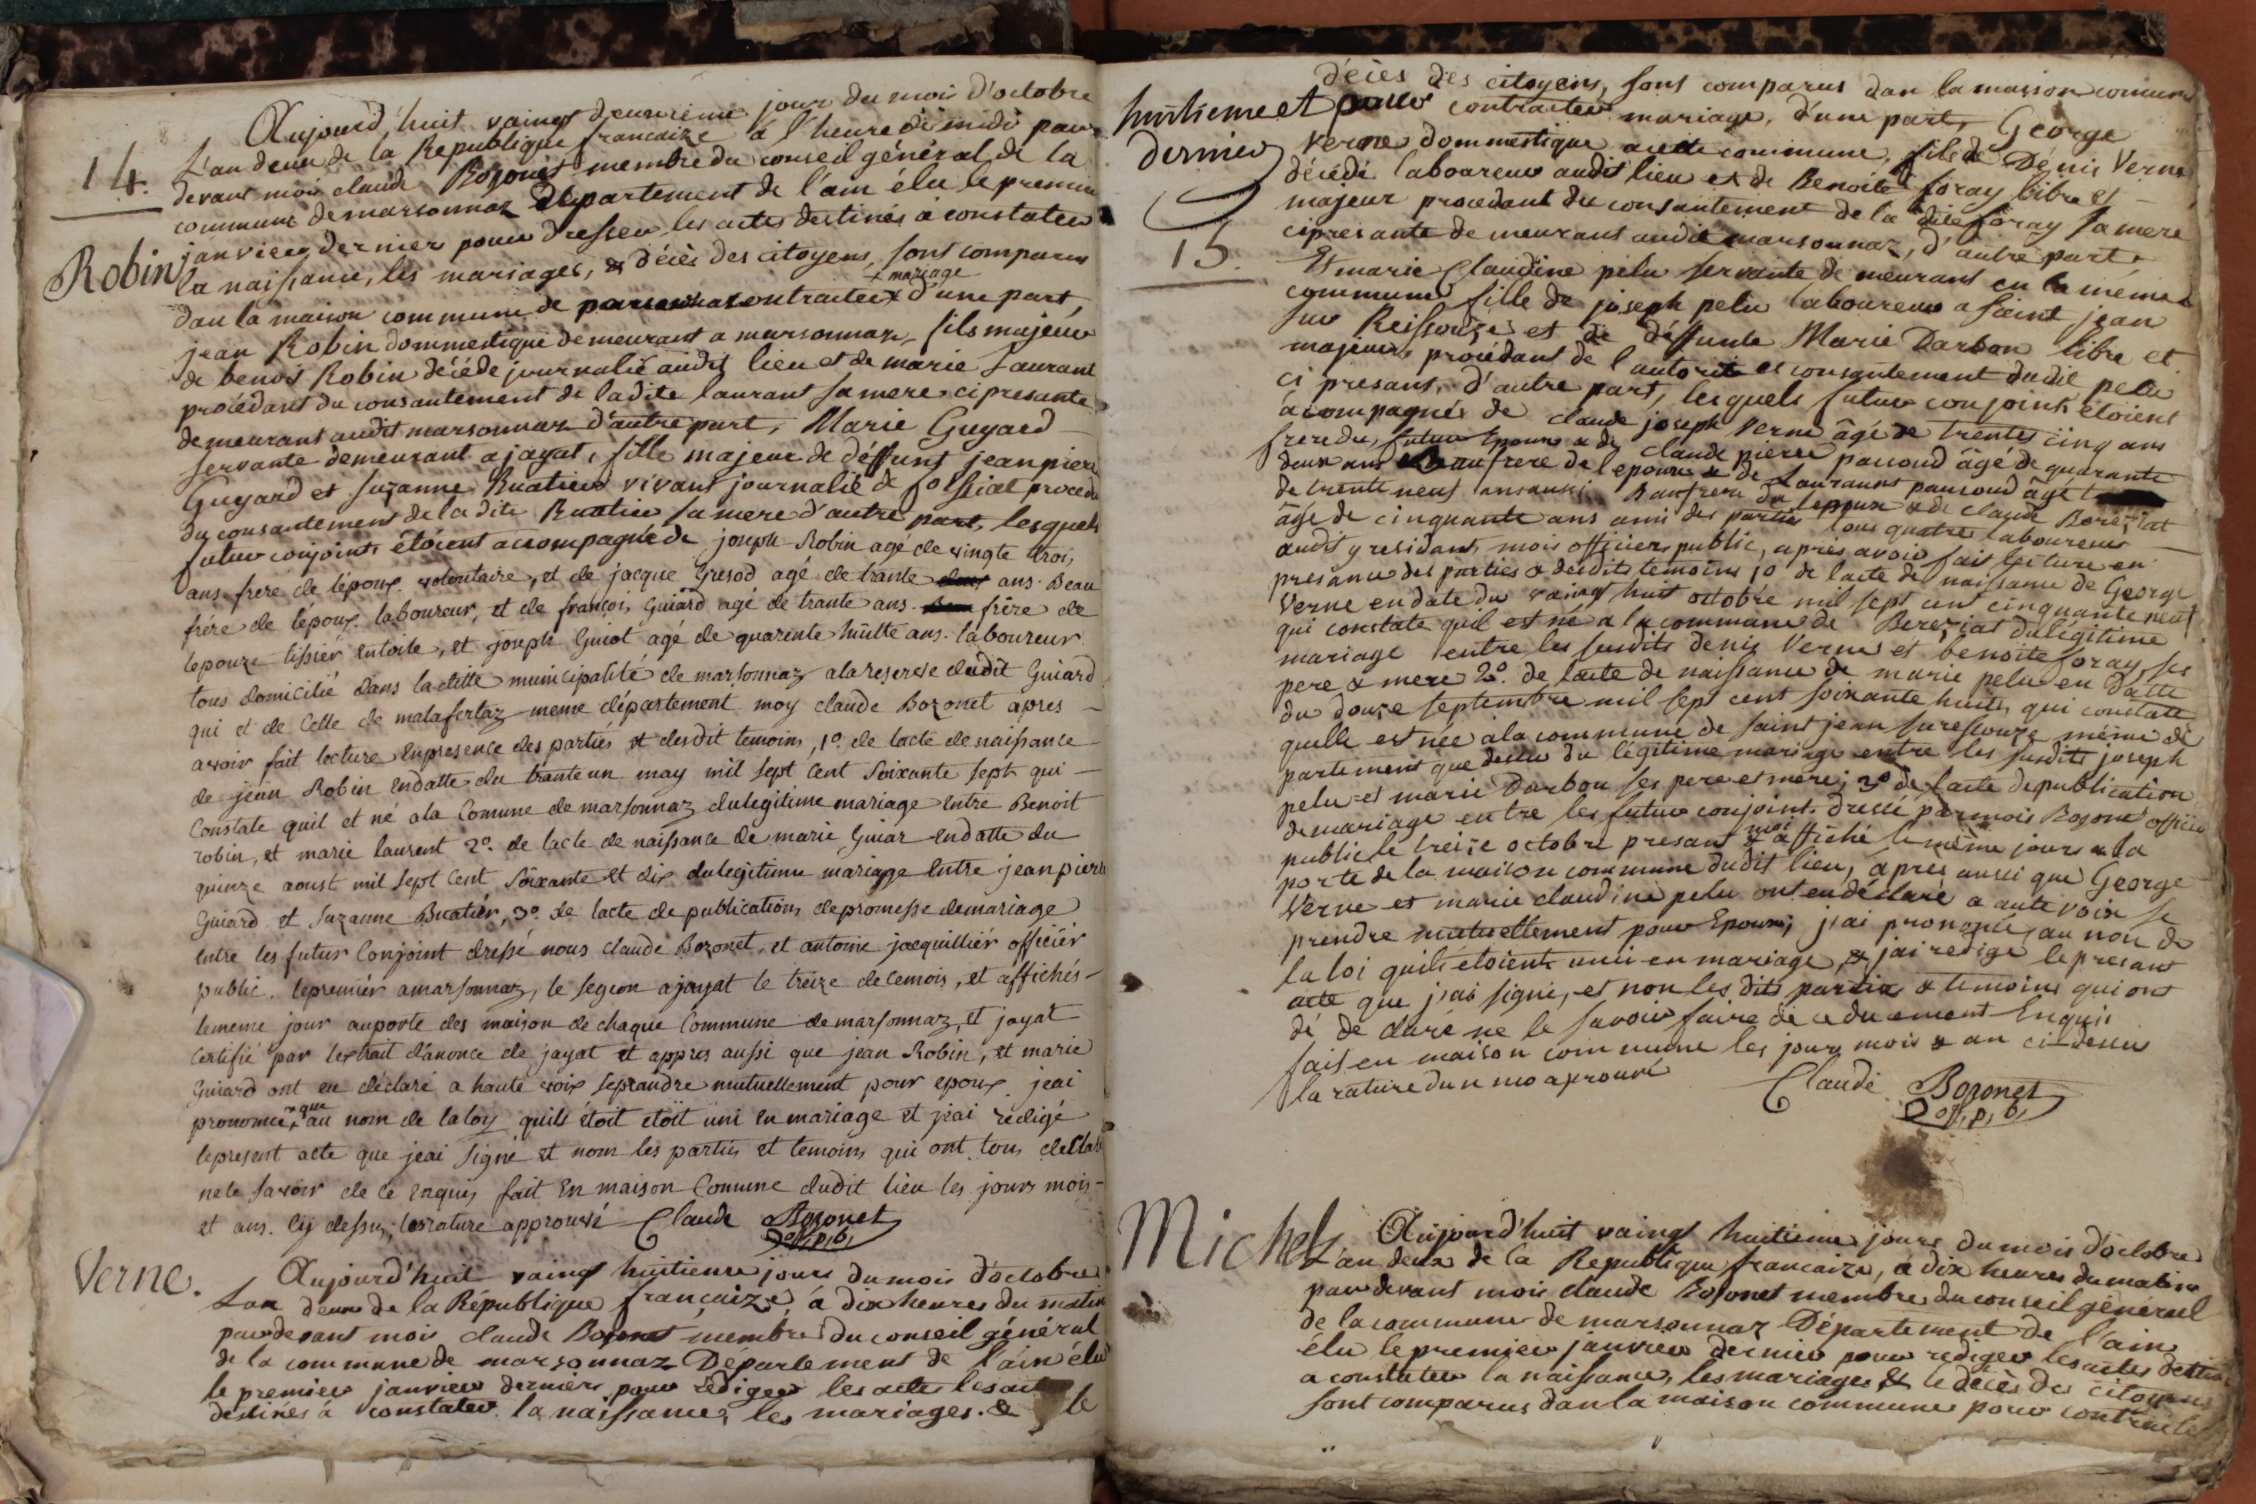 14.
Robin
Aujourd'huit vaingt deuxieme jour du mois d'octobre
L'an deux de la Republique francaize à l'heure de midi par
devant moi claude Bozonet membre du conseil général de la
commune de marsonnaz Département de l'ain élu le premier
janvier dernier pour dresser les actes destinés a constater
la naissance, les mariages, & décès des citoyens, sont comparus
dan la maison commune de contracter mariage d'une part,
jean Robin dommestique demeurant a marsonnaz, fils majeur
de benoit Robin décéde journalié audit lieu et de marie Laurant
procédant du consantement de ladite laurant sa mere cipresante
demeurant audit marsonnaz d'autre part, Marie Guyard
servante demeurant a jayat, fille majeur de déffunt jeanpiere
Guyard et suzanne Buatier vivant journalié & procéda
du consantement de la dite Buatier sa mere d'autre part, lesquels
futur conjoints étoient accompagné de joseph Robin agé de vingte trois
ans frere de l'époux volontaire, et de jacque Gresod agé de trante ans. Beau
frére de l'époux laboureur, et de francois Guiard agé de trante ans. frére de
lepouze tissier entoile, et joseph Guiot agé de quarente huitte ans. laboureur
tous domicilié dans laditte municipalité de marsonnaz alareserve dudit Guiard
qui et de Celle de malafertaz meme département moy claude Bozonet apres
avoir fait lecture enpresence des partiés et desdit temoins, 1º. de lacte de naissance
de jean Robin endatte du trante un may mil sept Cent Soixante sept qui
Constate quil et né ala Comune de marsonnaz dulegitime mariage entre Benoit
robin, et marie laurent 2º. de lacte de naissance de marie Guiar endatte du
quinze aoust mil sept Cent Soixante et dix dulegitime mariage entre jeanpierre
Guiard et suzanne Buatiér, 3º. de lacte de publications depromesse demariage
entre les futur Conjoint dressé nous claude Bozonet, et antoine jacquilliér officiér
public. lepremiér amarsonnaz, le segon ajayat le treize decemois, et affichés
lememe jour auporte des maison de chaque Commune demarsonnaz, et jayat
Certifié par lextrait d'anonce de jayat et appres aussi que jean Robin, et marie
Guiard ont en déclaré a haute voix seprandre mutuellement pour epoux jeai
pronomcé, que au nom de laloy quils étoit etoit uni en mariage et jeai redigé
lepresent acte que jeai signé et nom les partiés et temoins qui ont tous declaré
nele savoir de ce enquis fait en maison Comune dudit lieu les jours mois
et ans. Cy dessus, lesrature approuvé Claude Bozonet
off, p, b,
Verne.
Aujourd'huit vaingt huitieme jours du mois d'octobre
Lan deux de la République francaize, à dix heures du matin
pardevant mois claude Bozonet membre du conseil général
de la commune de marsonnaz Département de l'ain élu
le premier janvier dernier pour rédiger les actes
destinés à constater la naissance, les mariages. & le
décès des citoyens, sont comparus dan la maison commune
huitieme et
dernier
15.
pour contracter mariage, d'une part, George
Verne dommestique acette commune, fils de Dénis Verne
décédé laboureur audit lieu et de Benoite foray libre et
majeur procédant du consantement de la dite foray sa mere
cipresante demeurant audit marsonnaz, d'autre part.
Et marie Claudine pelu servante demeurant en la mème
commune fille de joseph pelu laboureur a saint jean
sur Reissouze et de déffunte Marie Darbon libre et
majeure procédant de l'autorité et consantement dudit pelu
ci presant, d'autre part, lesquels futur conjoints étoient
acompagnés de claude joseph Verne âgé de trente cinq ans
frere du futur Epoux & de claude pierre paccoud âgé de quarante
deux ans beaufrere de lepoux & de Laurant paucoud âgé
de trente neuf ans aussi Baufrere du lepoux & de claude Bereziat
âgé de cinquante ans ami des parties tous quatre laboureur
audit y residant, mois officier public, après avoir fait lecture en
presance des parties & desdits temoins 1º de lacte de naissance de George
Verne endate du vaingt huit octobre mil sept cent cinquante neuf
qui constate quil est né a la commune de Bereziat dulégitime
mariage entre les susdits denis Verne et benoite foray, ses
pere & mere 2º. de lacte de naissance de marie pelu en datte
du douze septembre mil sept cent soixante huit, qui constate
quelle est née ala commune de saint jean sur réssouze même dé
partement que dessus du légitime mariage entre les susdits joseph
pelu et marie Darbon ses pere et mére; 3º de lacte depublication
demariage entre les futur conjoints dressé parmois Bozonet officier
public le treize octobre presant moi & affiché le mème jour a la
porte de la maison commune dudit lieu, après aussi que George
Verne et marie claudine pelu ont en déclaré a aute voix se
prendre mutuellement pour Epoux; j'ai prononcé, au non de
la loi quils étoient unis en mariage, & jai redigé le presant
acte que j'ai signé, et non les dits parties & temoins qui ont
dé de claré ne le savoir faire de ce duement Enquis
fait en maison commune les jour mois & an ci-dessus
la rature dun mo aprouvé Claude Bozonet
off, p, b,
Michel
Aujourd'huit vaingt huitieme jours dumois d'octobre
L'an deux de la Republique francaize, a dix heures du matin
pardevant mois claude Bozonet membre du conseil général
de la commune de marsonnaz Département de l'ain
élu le premier janvier dernier pour rediger les actes destinés
a constater la naissance, les mariages & le décès des citoyens
sont comparus dan la maison commune pour contracter